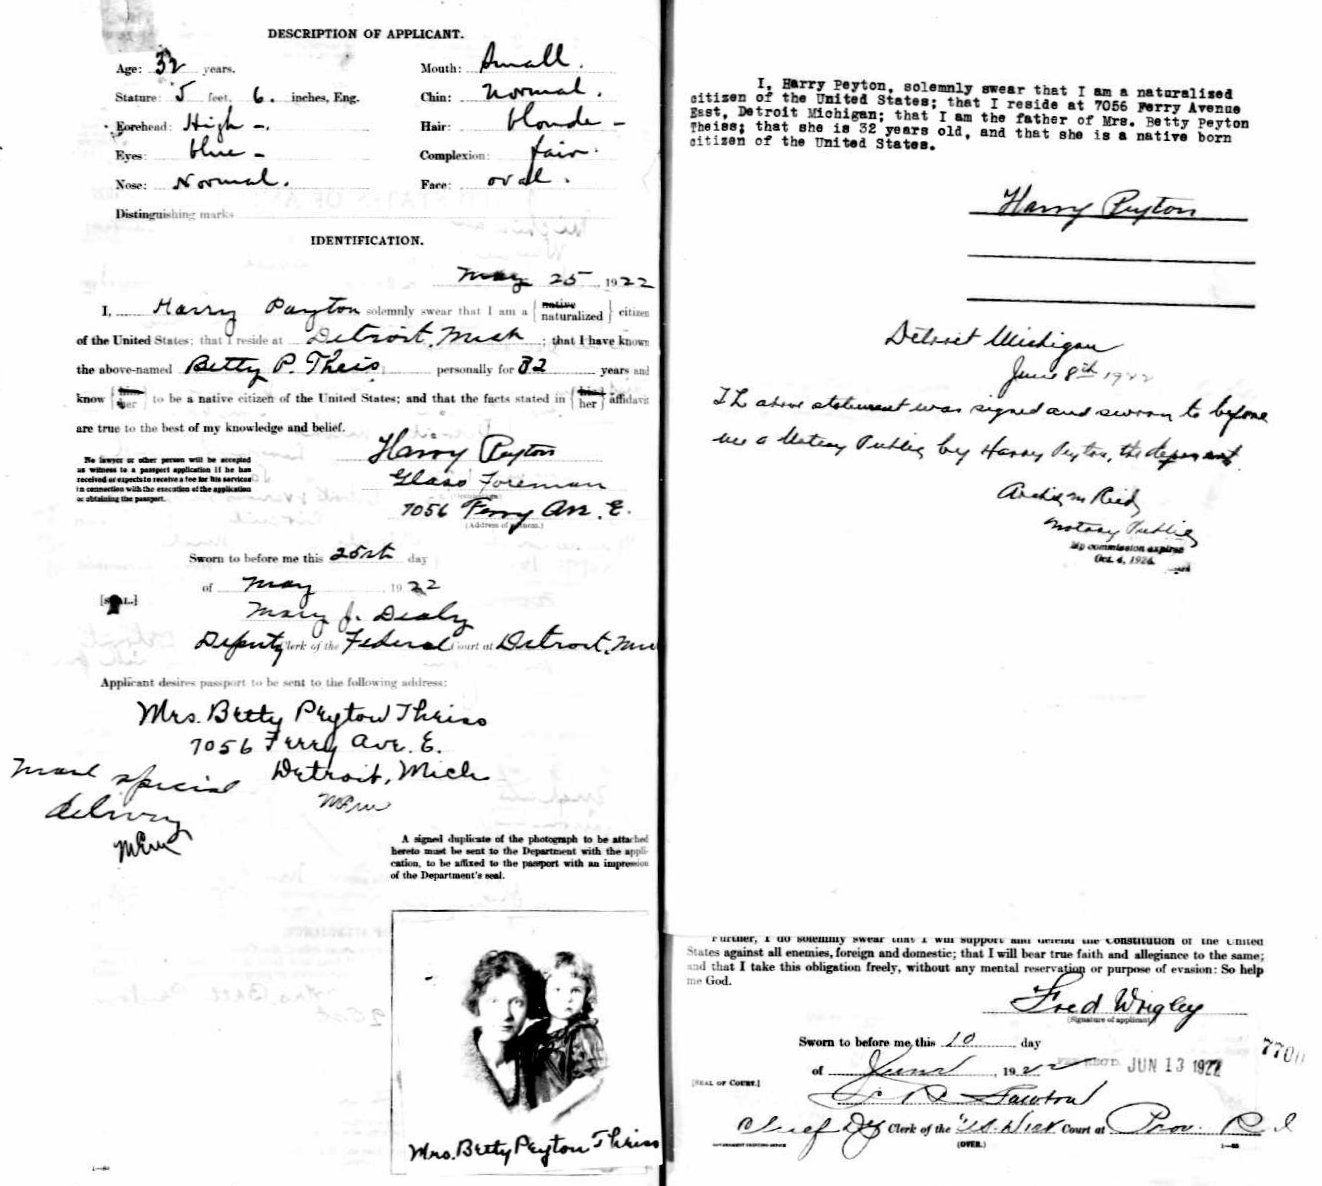 DESCRIPTION OF APPLICANT.
Age: 32 years.
Mouth: Small.
Stature: 5 feet, 6. inches, Eng.
Chin: Normal.
Forehead: High -.
Hair: blonde -
Eyes: blue -
Complexion: fair.
Nose: Normal.
Face: oval.
Distinguishing marks
IDENTIFICATION.
May 25 1922
I, Harry Payton solemnly swear that I am a { native naturalized } citizen
of the United States; that I reside at Detroit, Mich ; that I have known
the above-named Betty P. Theis personally for 32 years and
know { him her } to be a native citizen of the United States; and that the facts stated in { his her } affidavit
are true to the best of my knowledge and belief.
Harry Peyton
No lawyer or other person will be accepted
as witness to a passport application if he has
received or expects to receive a fee for his services
in connection with the execution of the application
or obtaining the passport.
Glass Foreman
7056 Ferry Ave. E.
(Address of witness.)
Sworn to before me this 25th day
of May 1922
[SEAL.]
Mary J. Dealy
Deputy Clerk of the Federal Court at Detroit,
Applicant desires passport to be sent to the following address:
Mrs. Betty Peyton Theiss
7056 Ferry Ave. E.
Detroit, Mich
Mail special
delivery
A signed duplicate of the photograph to be attached
hereto must be sent to the Department with the appli-
cation, to be affixed to the passport with an impression
of the Department's seal.
Mrs. Betty Peyton Theiss
I, Harry Peyton, solemnly swear that I am a naturalized
citizen of the United States; that I reside at 7056 Ferry Avenue
East, Detroit Michigan; that I am the father of Mrs. Betty Peyton
Theiss; that she is 32 years old, and that she is a native born
citizen of the United States.
Harry Peyton
Detroit Michigan
June 8th 1922
The above statement was signed and sworn to before
me a Notary Public by Harry Peyton, the deponent.
Archie M Reid
Notary Public
My commission expires
Oct. 4, 1924
Further, I do solemnly swear that I will support and defend the Constitution of the United
States against all enemies, foreign and domestic; that I will bear true faith and allegiance to the same;
and that I take this obligation freely, without any mental reservation or purpose of evasion: So help
me God.
Fred Wrigley
(Signature of applicant)
Sworn to before me, this 10 day
of June, 1922
JUN 13 1922
7700
[SEAL OF COURT.]
Chief Dy Clerk of the U.S. Dist Court at Prov. R I
GOVERNMENT PRINTING OFFICE
(OVER.)